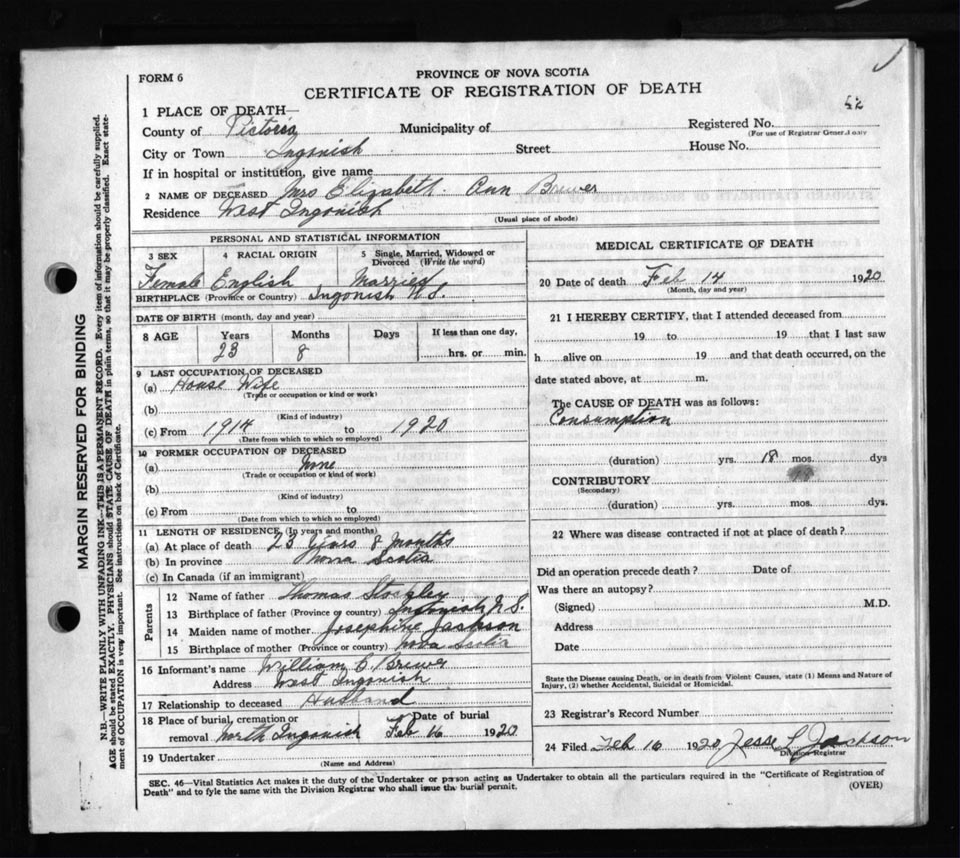 FORM 6
PROVINCE OF NOVA SCOTIA
CERTIFICATE OF REGISTRATION OF DEATH
52
1 PLACE OF DEATH—
County of Victoria Municipality of Registered No.
(For use of Registrar General only
City or Town Ingonish Street House No.
If in hospital or institution, give name
2 NAME OF DECEASED Mrs Elizabeth Ann Brewer
Residence West Ingonish
(Usual place of abode)
PERSONAL AND STATISTICAL INFORMATION
3 SEX 4 RACIAL ORIGIN 5 Single, Married, Widowed or Divorced (Write the word)
Female English Married
BIRTHPLACE (Province or Country) Ingonish N.S.
DATE OF BIRTH (month, day and year)
8 AGE Years Months Days If less than one day,
23 8 hrs. or min.
9 LAST OCCUPATION OF DECEASED
(a) House Wife
(Trade or occupation or kind or work)
(b)
(Kind of industry)
(c) From 1914 to 1920
(Date from which to which so employed)
10 FORMER OCCUPATION OF DECEASED
(a) None
(Trade or occupation or kind of work)
(b)
(Kind of industry)
(c) From to
(Date from which to which so employed)
11 LENGTH OF RESIDENCE (In years and months)
(a) At place of death 23 years 8 months
(b) In province Nova Scotia
(c) In Canada (if an immigrant)
Parents
12 Name of father Thomas
13 Birthplace of father (Province or country) Ingonish N.S.
14 Maiden name of mother Josephine Jackson
15 Birthplace of mother (Province or country) Nova Scotia
16 Informant's name William C. Brewer
Address West Ingonish
17 Relationship to deceased Husband
18 Place of burial, cremation or removal North Ingonish Date of burial Feb 16 1920
19 Undertaker
(Name and Address)
MEDICAL CERTIFICATE OF DEATH
20 Date of death Feb 14 1920
(Month, day and year)
21 I HEREBY CERTIFY, that I attended deceased from
19 to 19 that I last saw
h alive on 19 and that death occurred, on the
date stated above, at m.
The CAUSE OF DEATH was as follows:
Consumption
(duration) yrs. 18 mos. dys
CONTRIBUTORY
(Secondary)
(duration) yrs. mos. dys.
22 Where was disease contracted if not at place of death?
Did an operation precede death? Date of
Was there an autopsy?
(Signed) M.D.
Address
Date
State the Disease causing Death, or in death from Violent Causes, state (1) Means and Nature of
Injury, (2) whether Accidental, Suicidal or Homicidal.
23 Registrar's Record Number
24 Filed Feb 16 1920 Jesse L Jackson
Division Registrar
SEC. 46—Vital Statistics Act makes it the duty of the Undertaker or person acting as Undertaker to obtain all the particulars required in the "Certificate of Registration of
Death" and to fyle the same with the Division Registrar who shall issue the burial permit.
(OVER)
MARGIN RESERVED FOR BINDING
N.B.—WRITE PLAINLY WITH UNFADING INK—THIS IS A PERMANENT RECORD. Every item of information should be carefully supplied.
AGE should be stated EXACTLY. PHYSICIANS should STATE CAUSE OF DEATH in plain terms, so that it may be properly classified. Exact state-
ment of OCCUPATION is very important. See instructions on back of Certificate.